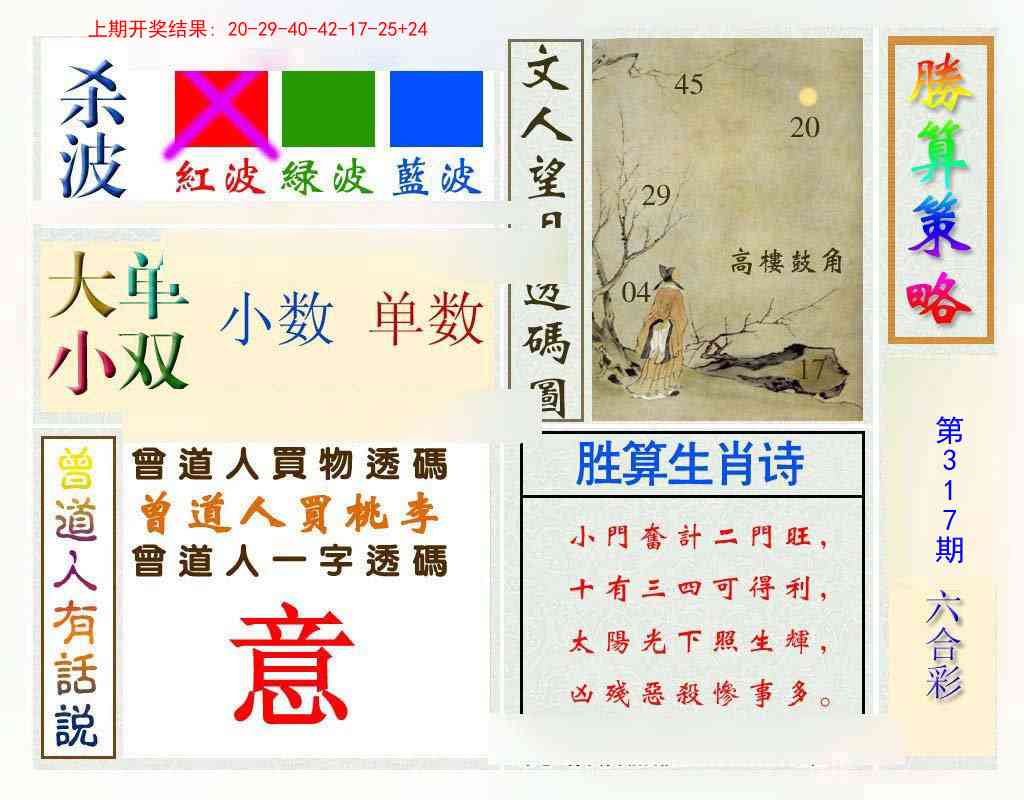 上期开奖结果: 20-29-40-42-17-25+24
杀波
紅波 绿波 藍波
大小
单双
小数 单数
文人望月透碼圖
45
20
29
高樓鼓角
04
17
勝算策略
第317期
六合彩
曾道人有話説
曾道人買物透碼
曾道人買桃李
曾道人一字透碼
意
胜算生肖诗
小門奮計二門旺，
十有三四可得利，
太陽光下照生輝，
凶殘惡殺慘事多。